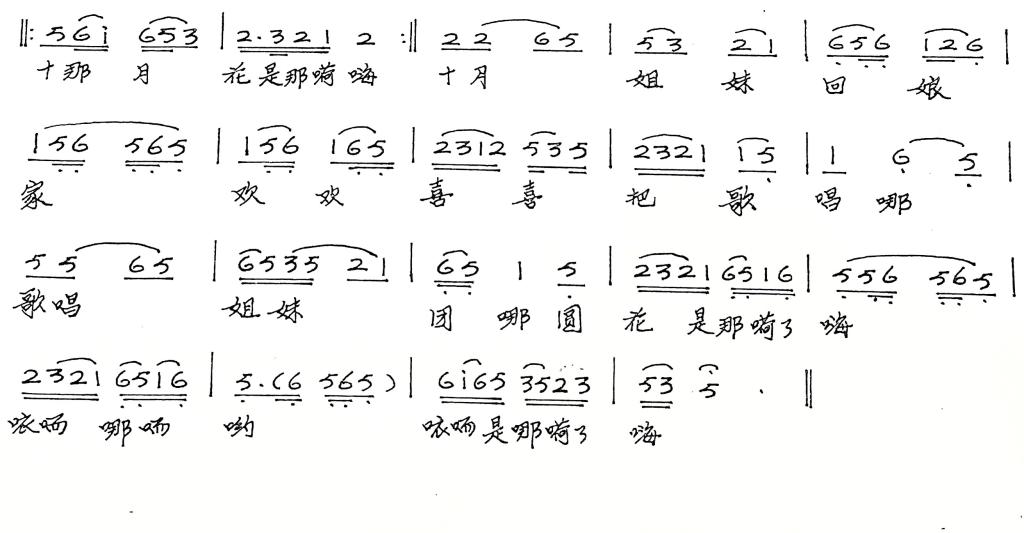 ‖: 5 6 i 6 5 3 | 2 · 3 2 1 2 :‖ 2 2 6 5 | 5 3 2 1 | 6 5 6 1 2 6 |
十那 月 花是那嗬嗨 十月 姐 妹 回 娘
1 5 6 5 6 5 | 1 5 6 1 6 5 | 2 3 1 2 5 3 5 | 2 3 2 1 1 5 | 1 6 5 |
家 欢 欢 喜 喜 把 歌 唱 哪
5 5 6 5 | 6 5 3 5 2 1 | 6 5 1 5 | 2 3 2 1 6 5 1 6 | 5 5 6 5 6 5 |
歌唱 姐妹 团 哪 圆 花 是那嗬了 嗨
2 3 2 1 6 5 1 6 | 5 · ( 6 5 6 5 ) | 6 i 6 5 3 5 2 3 | 5 3 5 · ‖
哪 哟 是哪嗬了 嗨